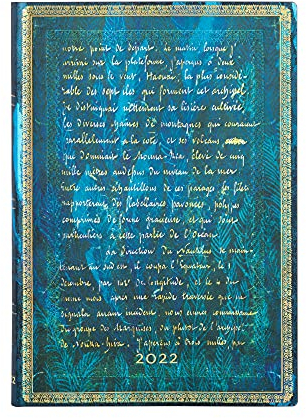 notre point de départ. Le matin, lorsque j'
arrivai sur la plateforme, j'aperçus à deux
milles sous le vent, Haouaï, la plus considé-
rable des sept îles qui forment cet archipel.
Je distinguai nettement sa lisière cultivée,
les diverses chaînes de montagnes qui courent
parallèlement à la côte, et ses volcans
que dominent le Mouna-Rea, élevé de cinq
mille mètres au-dessus du niveau de la mer
Entre autres échantillons de ces parages, les filets
rapportèrent des flabellaires pavonées, polypes
comprimés de forme gracieuse, et qui sont
particuliers à cette partie de l'Océan.
La direction du Nautilus se main-
tenant au sud-est, il coupa l'Équateur, le 1
décembre, par 142° de longitude, et le 4 du
même mois, après une rapide traversée que ne
signala aucun incident, nous eûmes connaissance
du groupe des Marquises. de l'archipel
de Nouka-hiva. J'aperçus à trois milles, par
2022